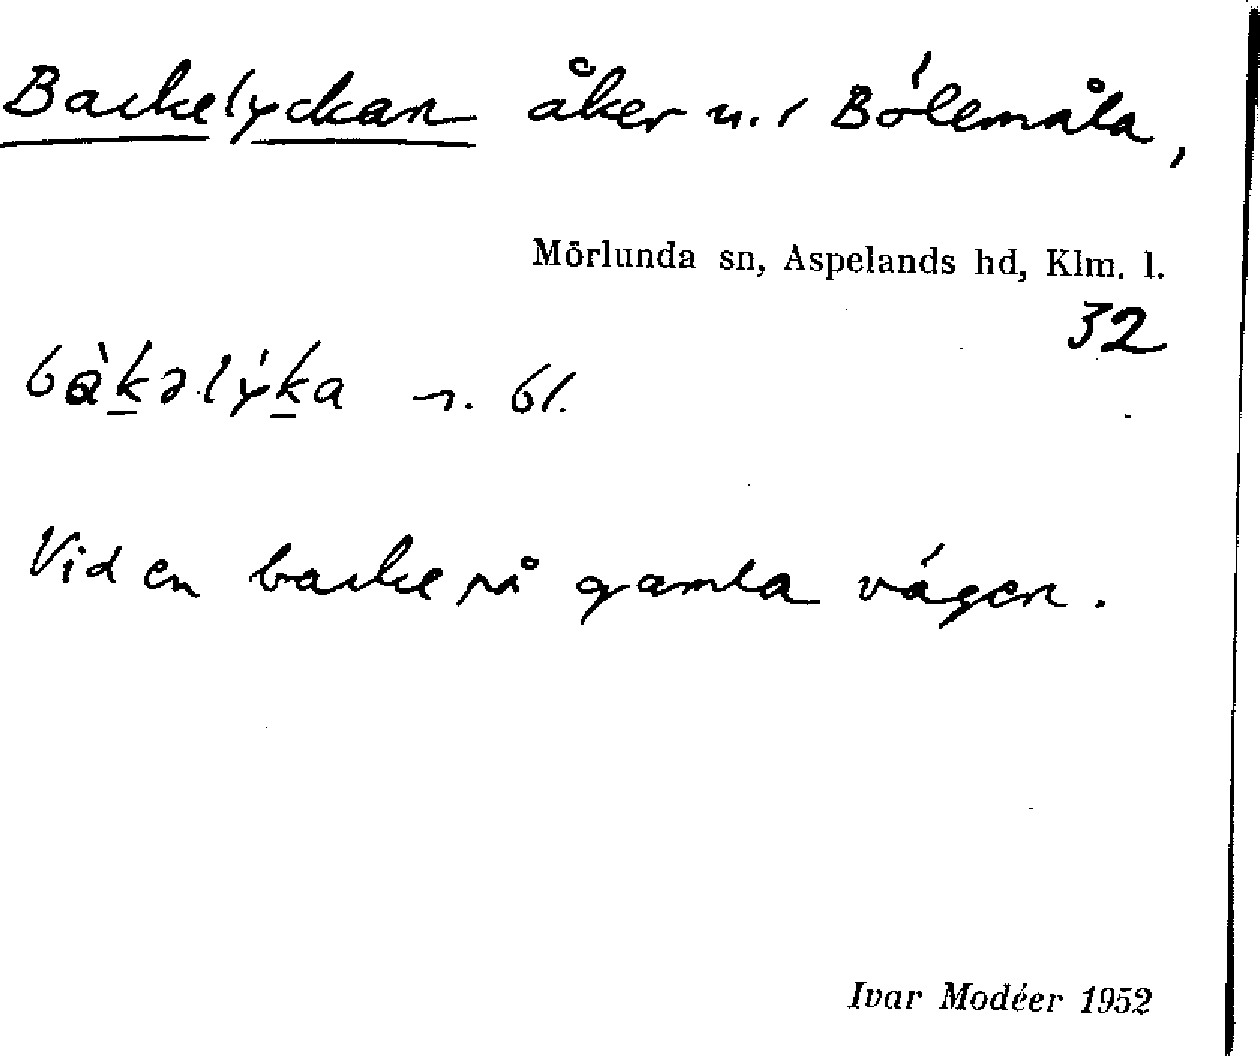 Backelyckan åker u. / Bölemåla,
Mörlunda sn, Aspelands hd, Klm. l.
32
bàkəlýka n. bl.
Vid en backe på gamla vägen.
Ivar Modéer 1952